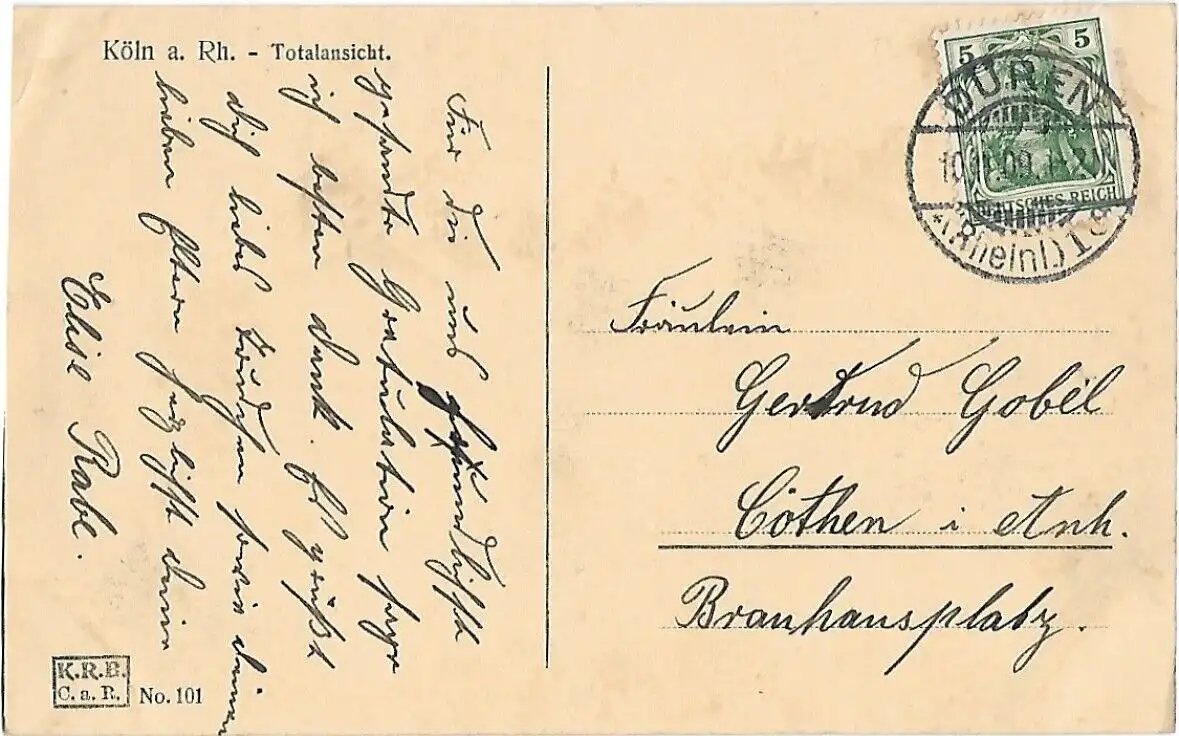 Köln a. Rh. - Totalansicht.
Für die uns freundlichst
gesandte Gratulation sage
ich besten Dank. Es grüßt
dich liebes Trudchen sowie deinen
lieben Eltern herzlichst deine
Elise Rabe.
K.R.B.
C. a. R.
No. 101
5 5
DEUTSCHES REICH
DÜREN
*(Rheinl.) 1
Fräulein
Gertrud Gobël
Cöthen i Anh.
Brauhausplatz.